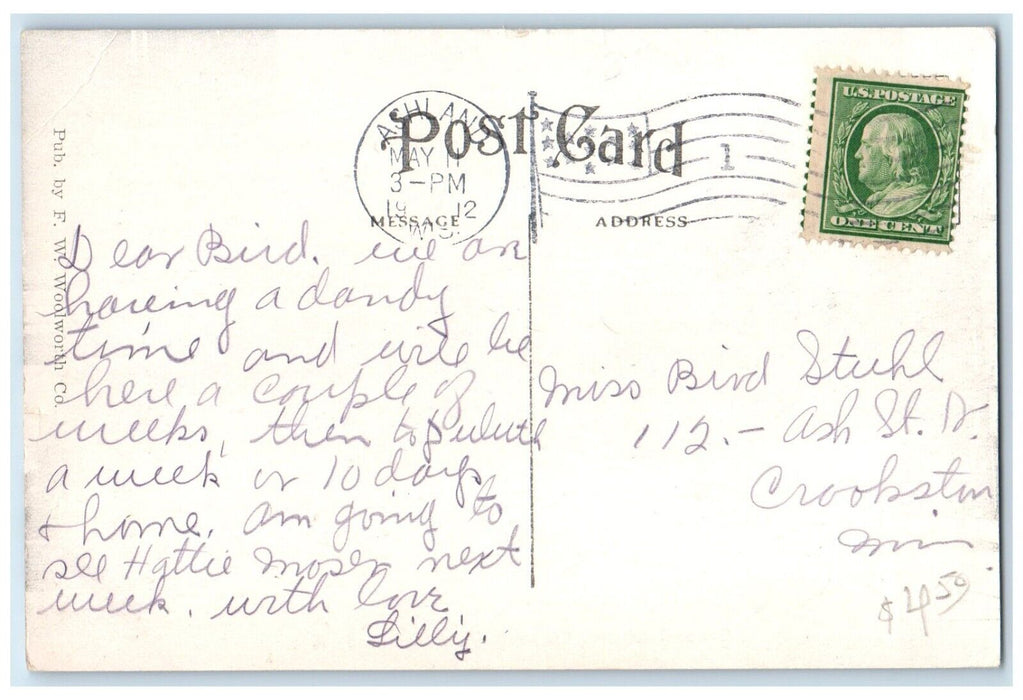 Post Card
ASHLAND
MAY 11
3-PM
19 12
WIS.
1
U.S. POSTAGE
ONE CENT
MESSAGE
ADDRESS
Pub. by F. W. Woolworth Co.
Dear Bird. we are
haveing a dandy
time and will be
here a couple of
weeks, then to Duluth
a week or 10 days
& home. am going to
see Hattie Moser next
week. with love
Lilly.
Miss Bird Stuhl
112.- Ash St. N.
Crookston
Minn.
$4.50